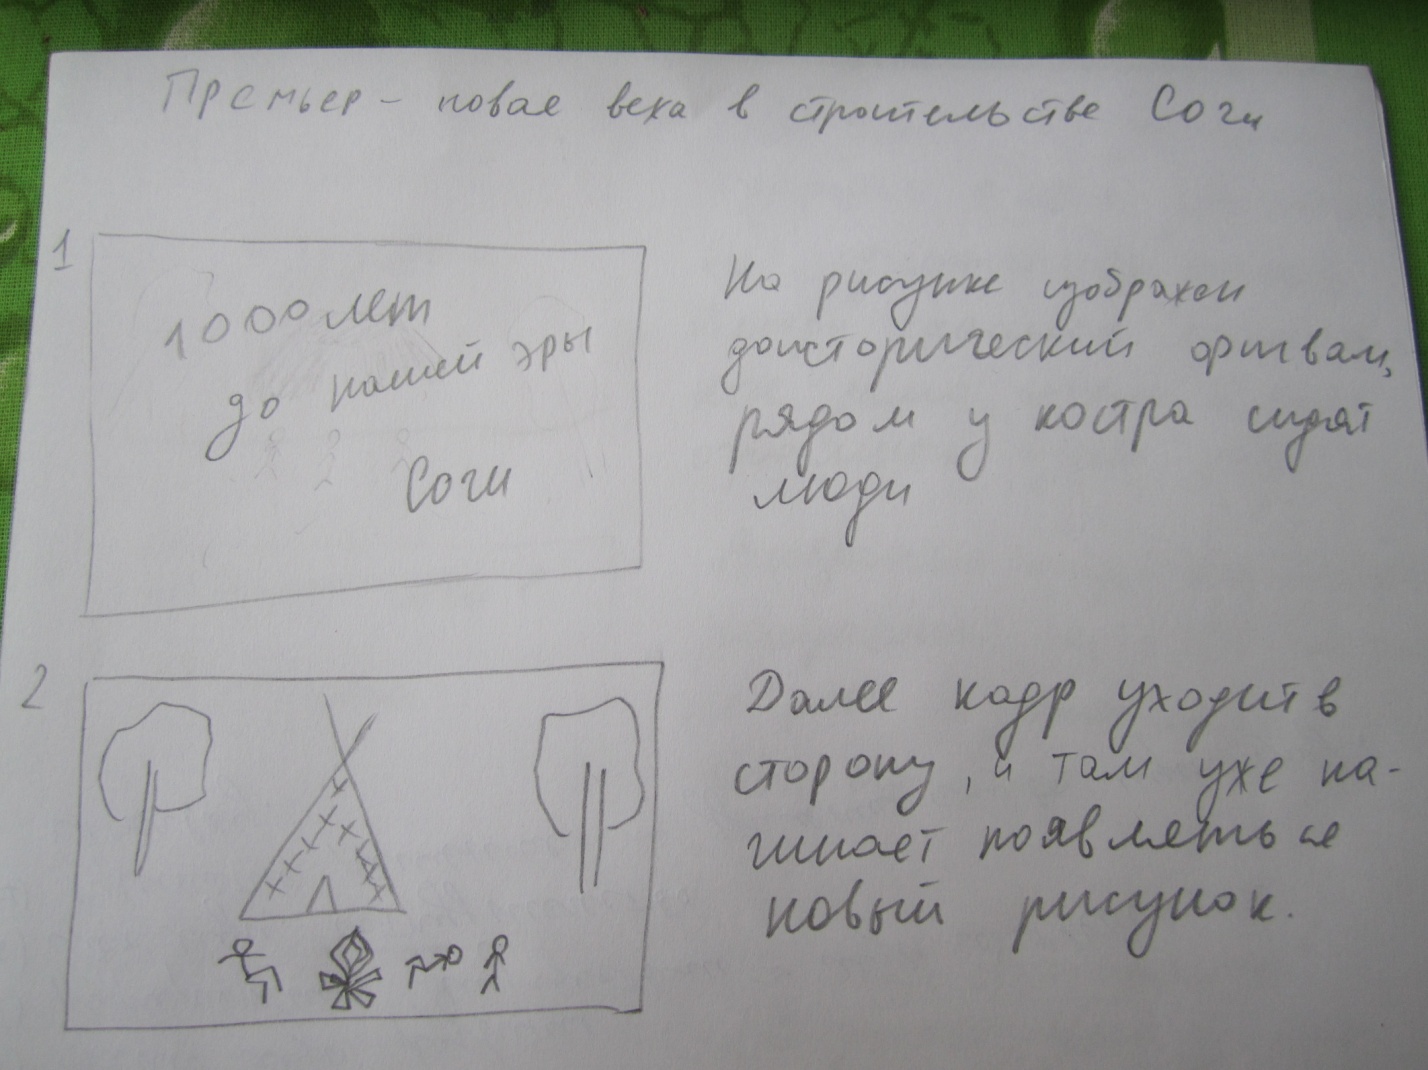 Премьер - новая веха в строительстве Сочи
1
1000 лет
до нашей эры
Сочи
На рисунке изображен
доисторический фигвам,
рядом у костра сидят
люди
2
Далее кадр уходит в
сторону, и там уже на-
чинает появляться
новый рисунок.